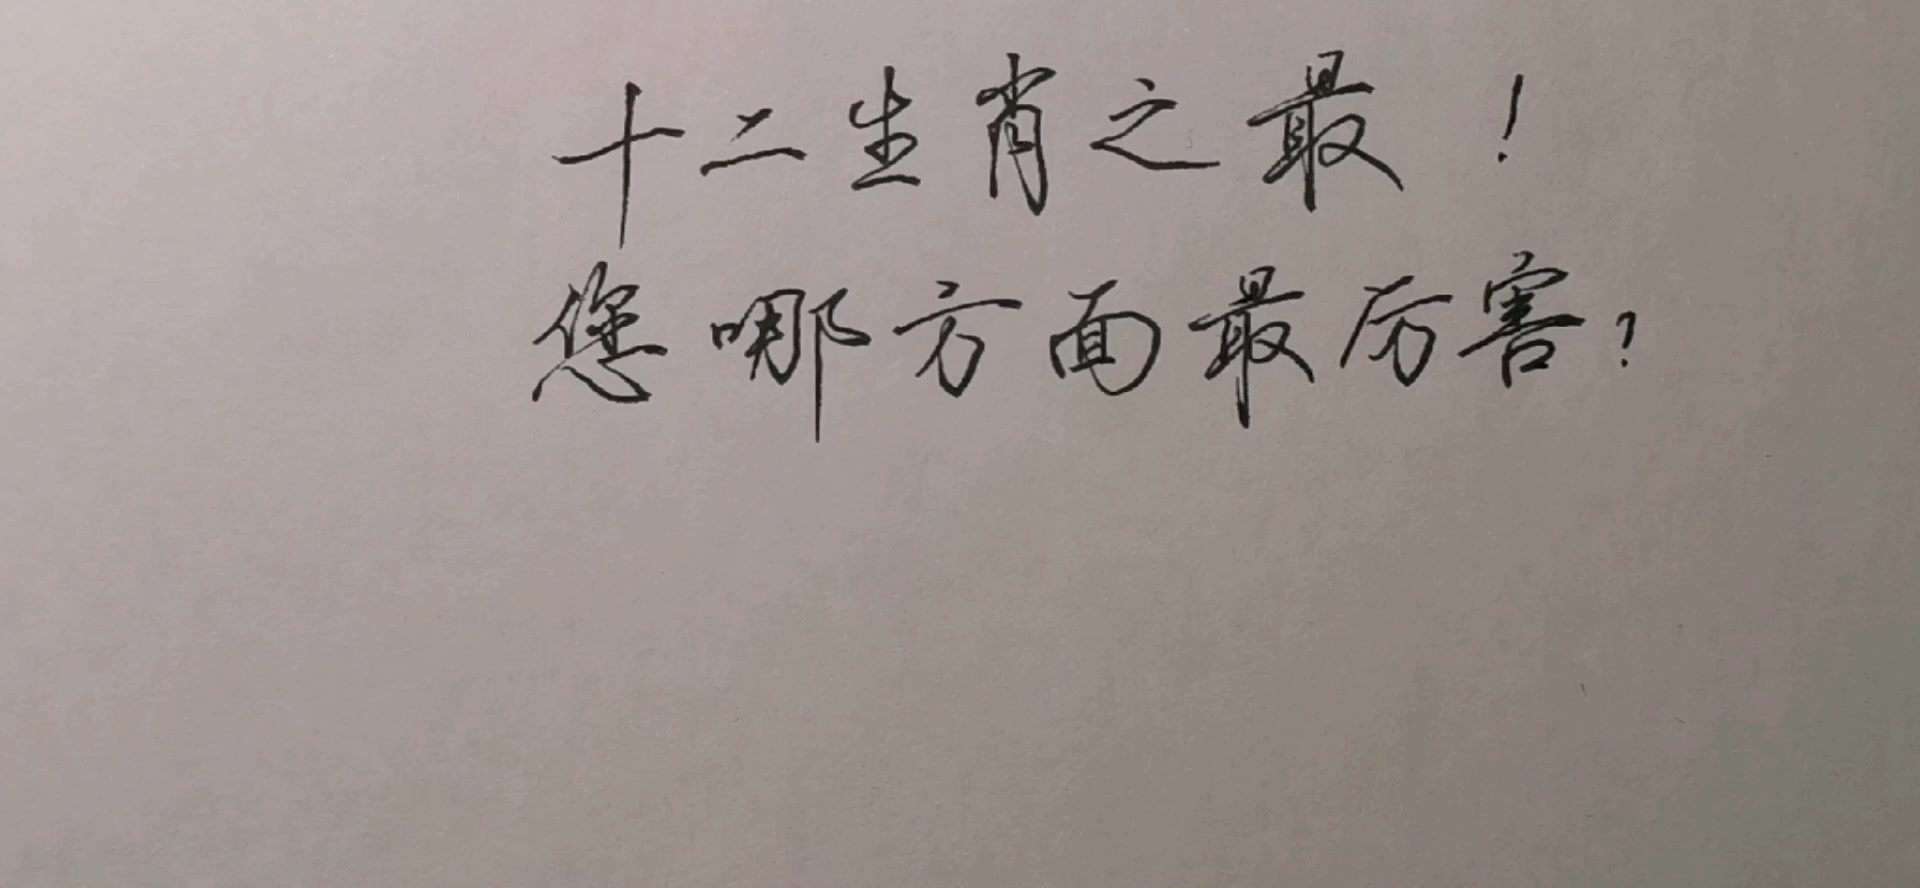 十二生肖之最！
您哪方面最厉害？